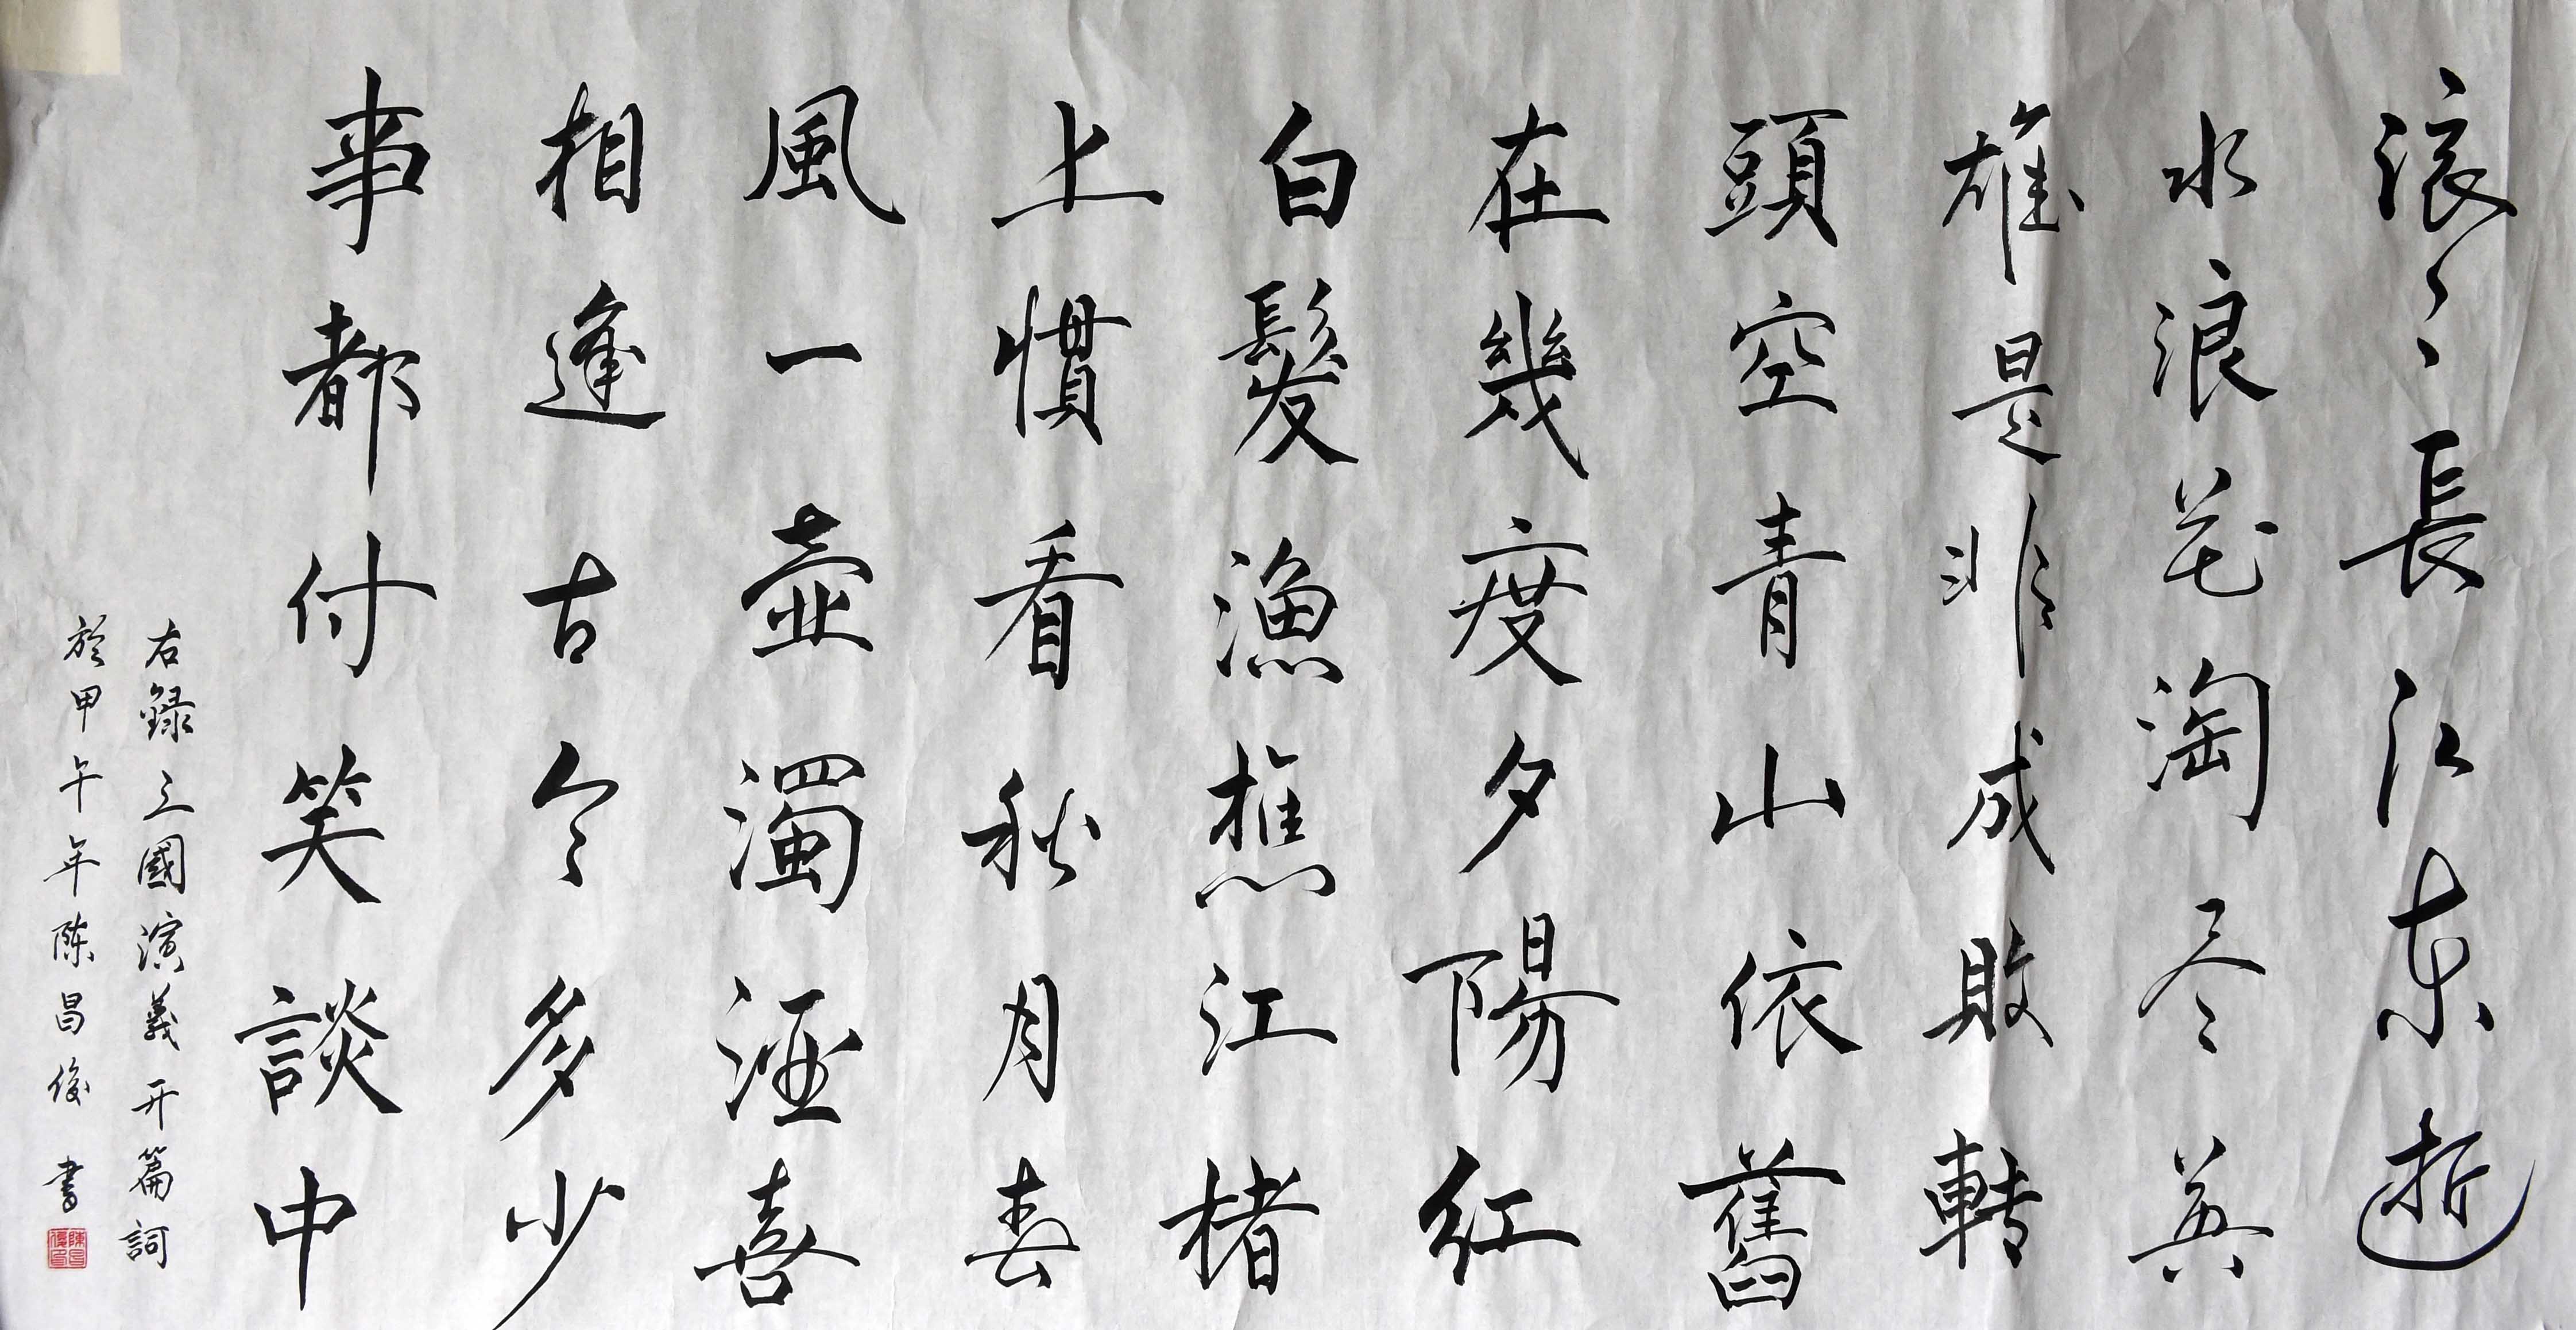 滚〻長江東逝
水浪花淘尽英
雄是非成敗轉
頭空青山依舊
在幾度夕陽红
白髮漁樵江楮
上慣看秋月春
風一壺濁酒喜
相逢古今多少
事都付笑談中
右録三國演義开篇詞
於甲午年陈昌俊書